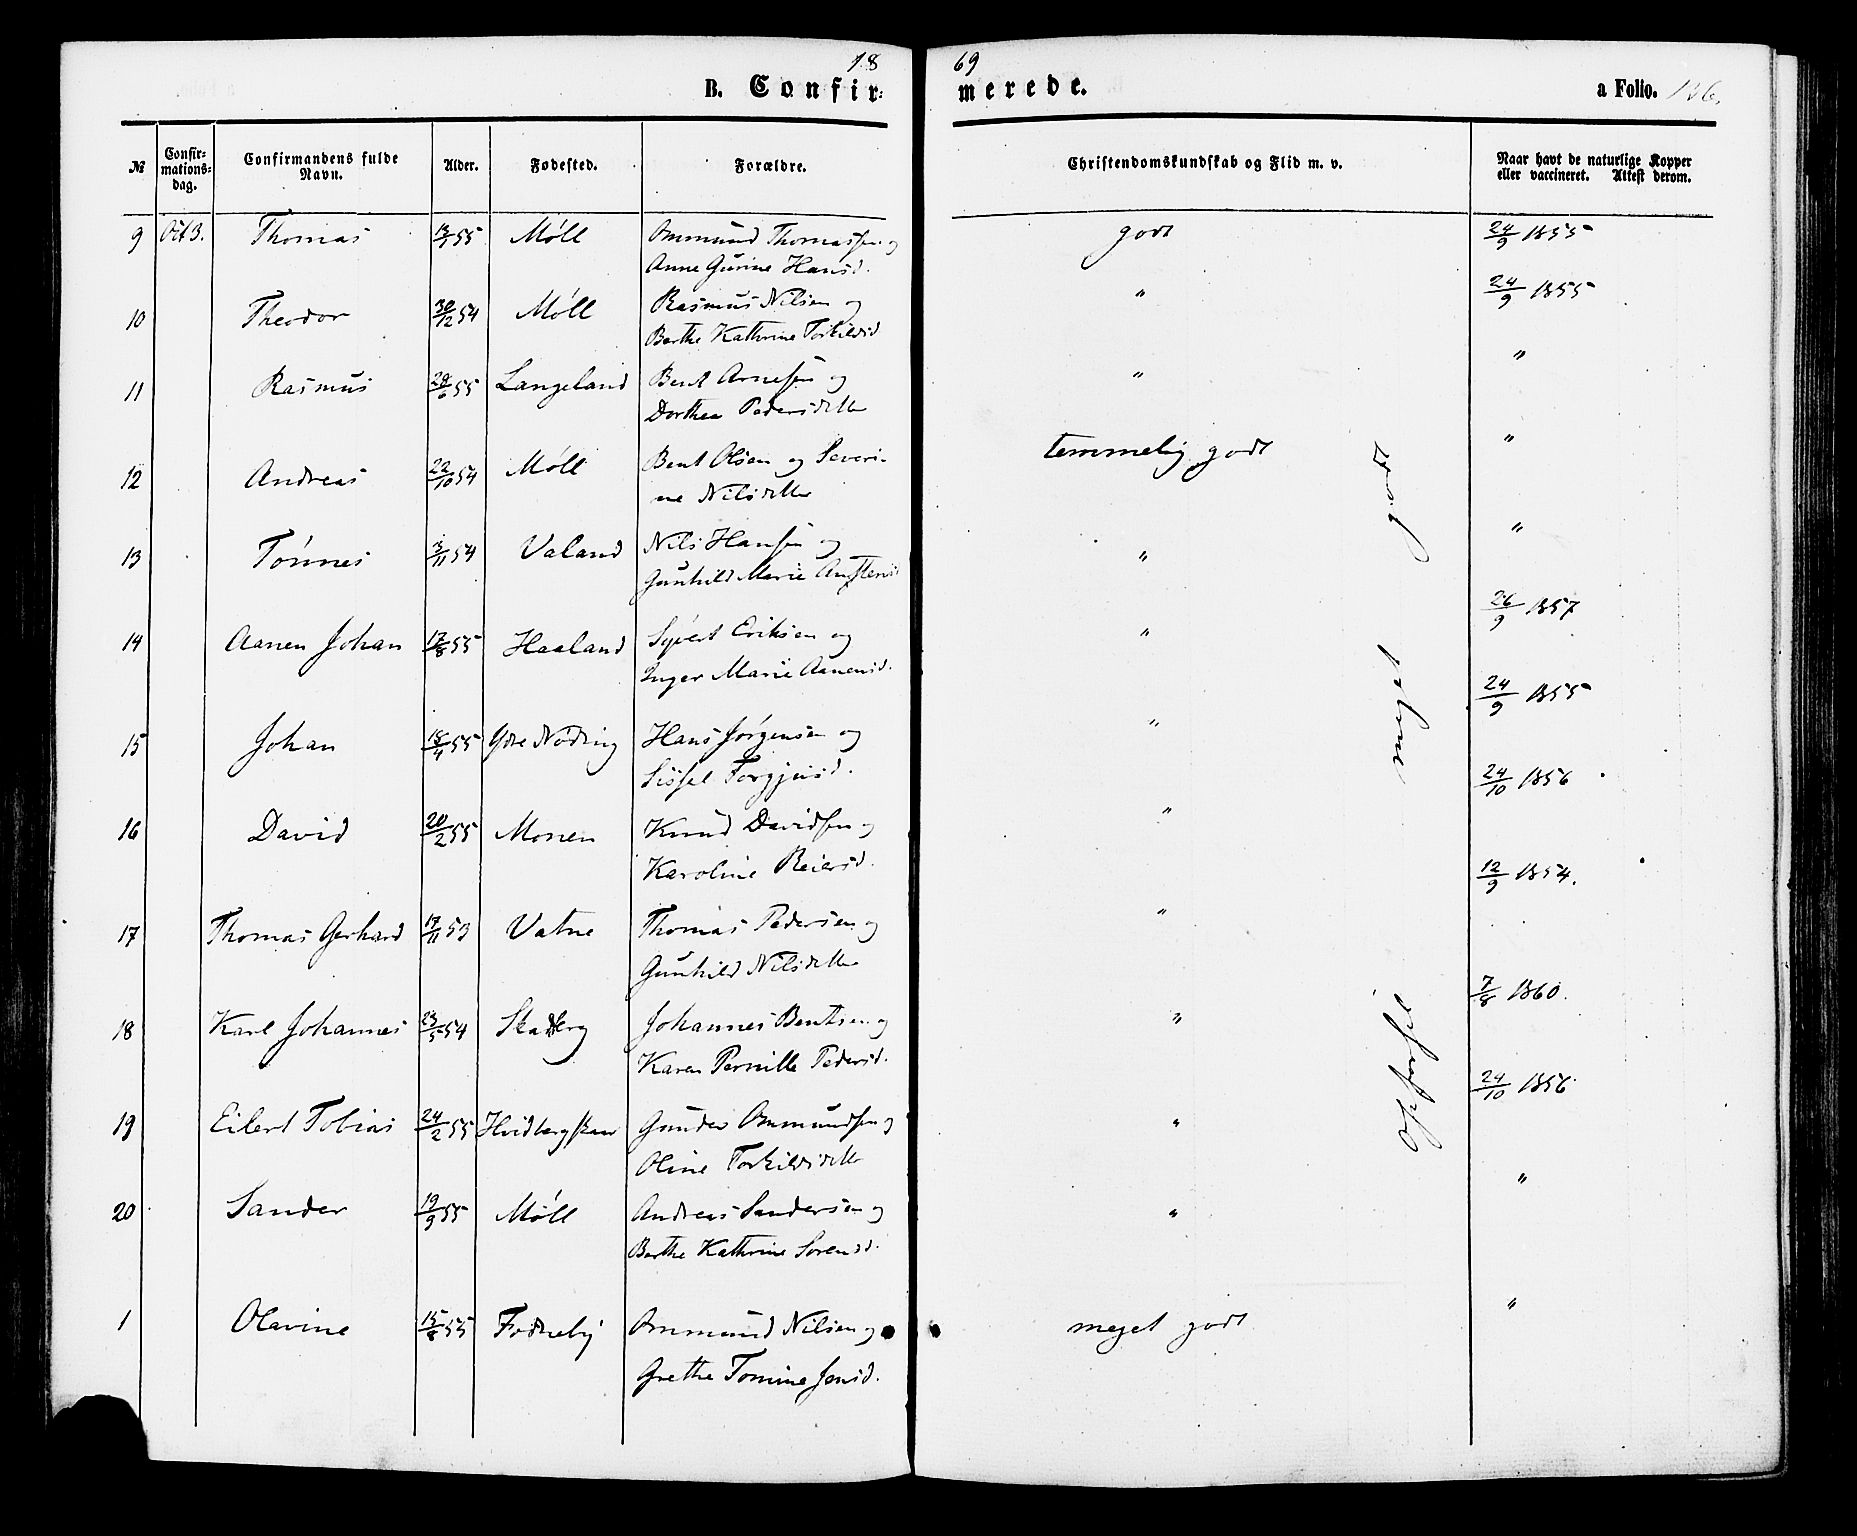 18 69
B. Confir: merede. a Folio. 136.
№ Confirmations-dag. Confirmandens fulde Navn. Alder. Fødested. Forældre. Christendomskundskab og Flid m. v. Naar havt de naturlige Kopper eller vaccineret. Attest derom.
9 Oct 3. Thomas 55 Møll Ommund Thomassen og godt 24/9 1855
Anne Gurine Hansd.
10 Theodor 30/12 54 Møll Rasmus Nilsen og " 24/9 1855
Berthe Kathrine Torkildsd
11 Rasmus 28/6 55 Langeland Bent Arnesen og " "
Dorthea Pedersdtter
12 Andreas 22/10 54 Møll Bent Olsen og Severi- temmelig godt "
ne Nilsdtter
13 Tønnes 3/11 54 Valand Nils Hansen og " "
Gunhild Marie Austensd
14 Aanen Johan 17/8 55 Haaland Syvert Eriksen og " 26/9 1857
Inger Marie Aanensd.
15 Johan 18/4 55 Ydre Nødting Hans Jørgensen og " 24/9 1855
Sissel Torgjusd.
16 David 20/2 55 Monen Knud Davidsen og " 24/10 1856
Karoline Reiersd.
17 Thomas Gerhard 17/11 53 Vatne Thomas Pedersen og " 12/9 1854.
Gunhild Nilsdtter
18 Karl Johannes 23/5 54 Johannes Bentsen og " 7/8 1860.
Karen Pernille Pedersd.
19 Eilert Tobias 24/2 55 Hvidbergskar Gunder Ommundsen og " 24/10 1856
Oline Torkildsdtter
20 Sander 19/9 55 Møll Andreas Sandersen og " "
Berthe Kathrine Sorensd.
1 Olavine 15/8 55 Fodneby Ommund Nilsen og meget godt "
Grethe Tomine Jensd.
Opførsel meget god